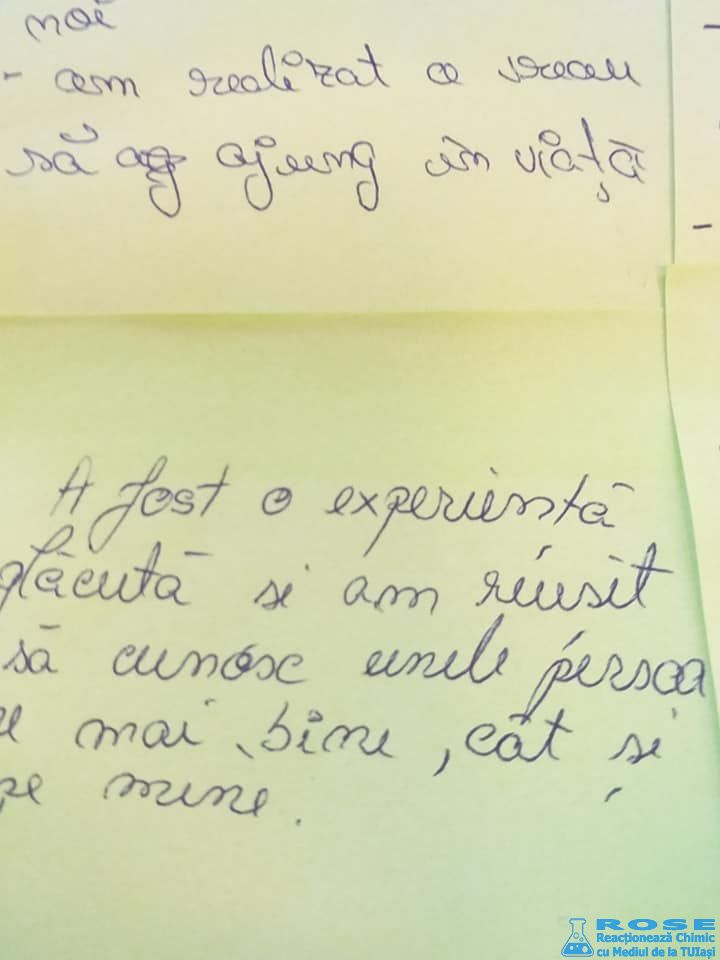 noi
- am realizat ce vreau
să ajung în viață
A fost o experiență
plăcută si am reusit
să cunosc unele persoa
mai bine, cât și
pe mine.
ROSE
Reacționează Chimic
cu Mediul de la TUIași